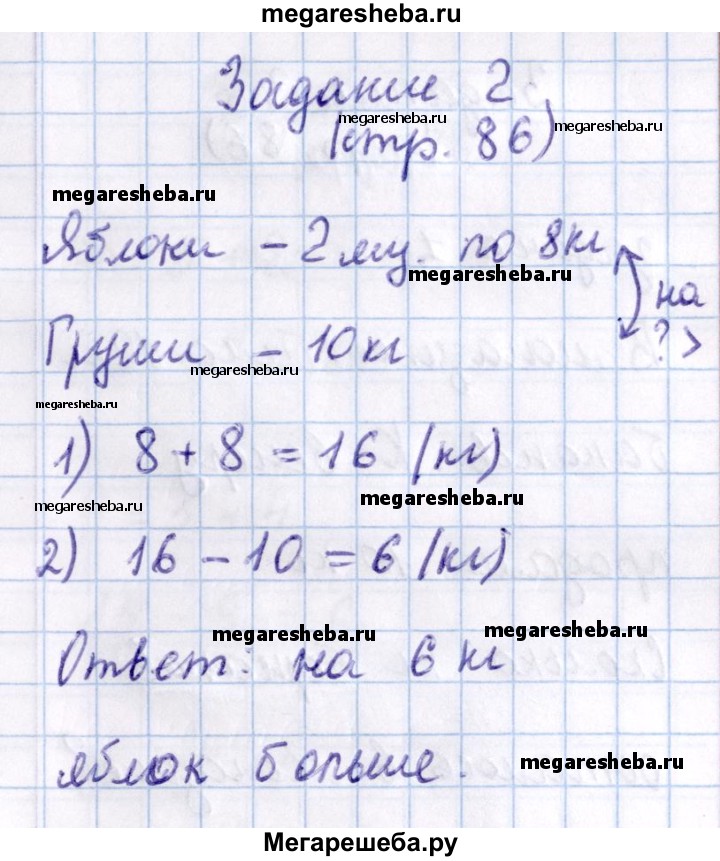 megaresheba.ru
Задание 2
megaresheba.ru
(стр. 86)
megaresheba.ru
megaresheba.ru
Яблоки - 2 ящ. по 8кг
megaresheba.ru
на
? >
Груши - 10кг
megaresheba.ru
megaresheba.ru
1) 8 + 8 = 16 (кг)
megaresheba.ru
megaresheba.ru
2) 16 - 10 = 6 (кг)
megaresheba.ru
megaresheba.ru
Ответ: на 6 кг
яблок больше.
megaresheba.ru
Мегарешеба.ру